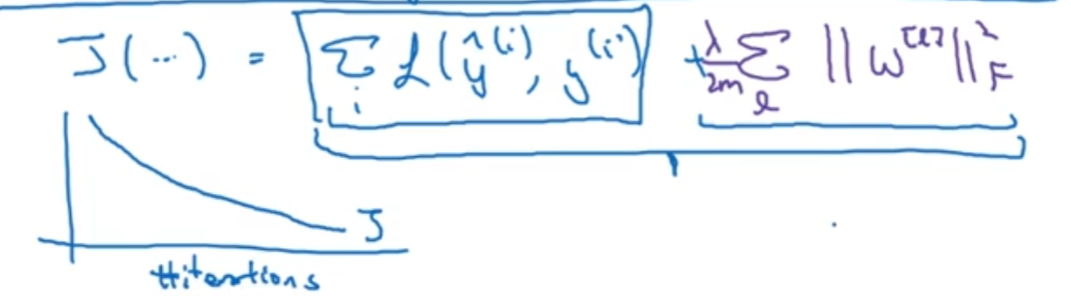 J(...) = Σ_i ℒ(ŷ^(i), y^(i)) + λ/2m Σ_l ||w^[l]||²_F
J
#iterations